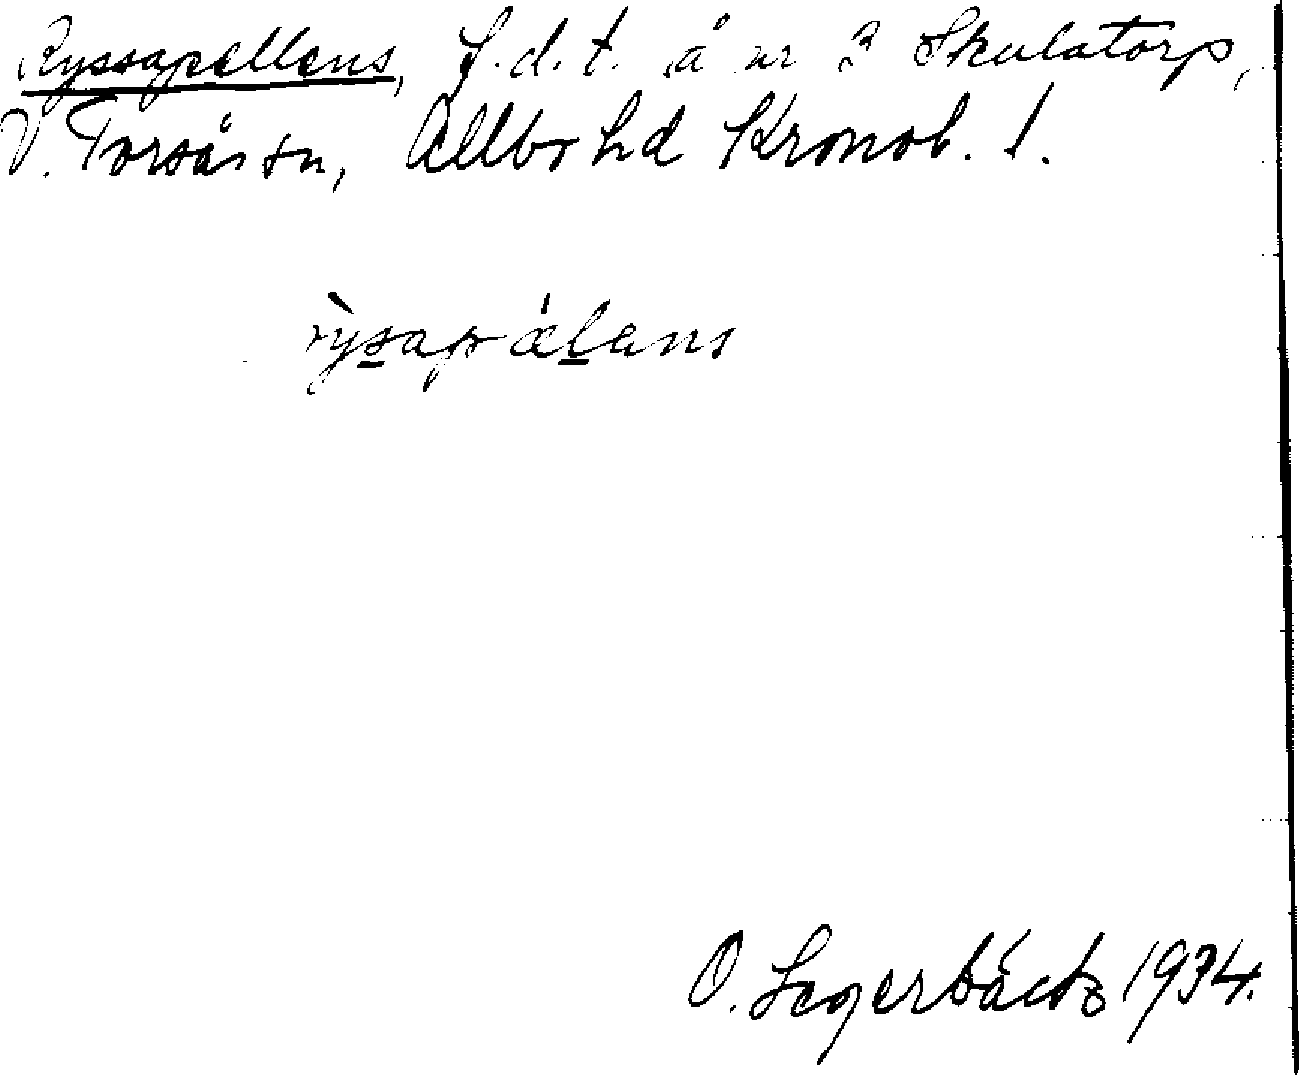 Ryssapellens, f.d.t. å nr 3 Skulatorp,
V. Torsås sn, Allbo hd Kronob. l.
rỳsapǽlens
O. Segerbäck 1934.